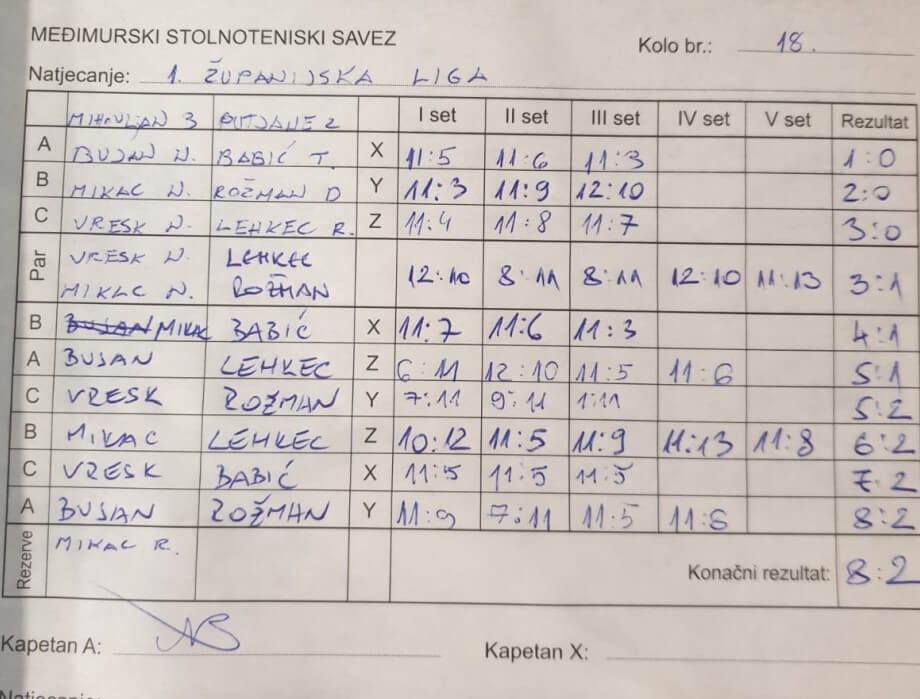 MEĐIMURSKI STOLNOTENISKI SAVEZ
Kolo br.: 18.
Natjecanje: 1. ŽUPANIJSKA LIGA
MIHOVLJAN 3 PUTJANE 2 I set II set III set IV set V set Rezultat
A BUJAN N. BABIĆ T. X 11:5 11:6 11:3 1:0
B MIKAC N. ROŽMAN D Y 11:3 11:9 12:10 2:0
C VRESK N. LEHKEC R. Z 11:4 11:8 11:7 3:0
Par VRESK N. LEHKEC
MIKAC N. ROŽMAN 12:10 8:11 8:11 12:10 11:13 3:1
B BUJAN MIKAC BABIĆ X 11:7 11:6 11:3 4:1
A BUJAN LEHKEC Z 6:11 12:10 11:5 11:6 5:1
C VRESK ROŽMAN Y 7:11 9:11 1:11 5:2
B MIKAC LEHKEC Z 10:12 11:5 11:9 11:13 11:8 6:2
C VRESK BABIĆ X 11:5 11:5 11:5 7:2
A BUJAN ROŽMAN Y 11:9 7:11 11:5 11:6 8:2
Rezerve MIKAC R.
Konačni rezultat: 8:2
Kapetan A:
Kapetan X:
Natjecanje: